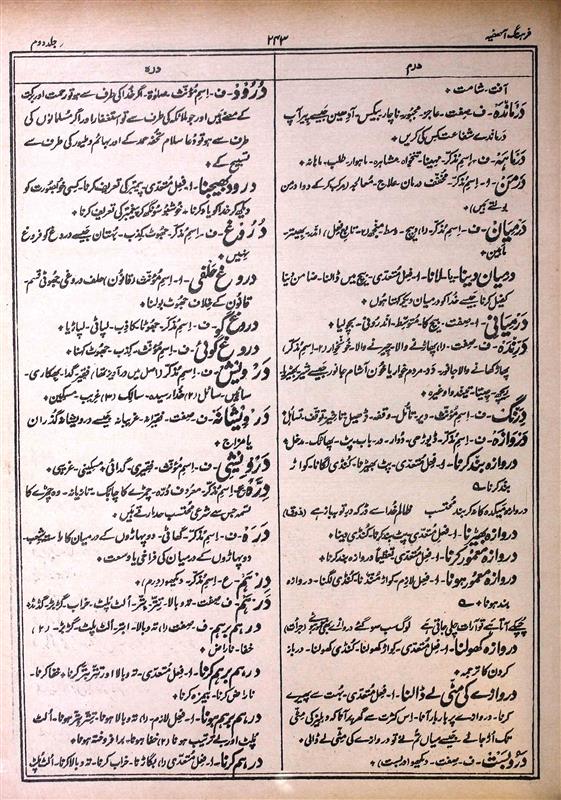 فرہنگ آصفیہ
۲۴۳
جلد دوم
درم
آفت۔ شامت *
دَرماندَہ۔ ف۔ صفت۔ عاجز۔ مجبور۔ ناچار۔ بیکس۔ آدھین۔ جیسے پیر آپ
درماندے شفاعت کس کی کریں *
دَرماہہ۔ ف۔ اسم مذکر۔ مہینا۔ تنخواہ۔ مشاہرہ۔ ماہوار۔ طلب۔ ماہانہ *
دَرمن۔ ا۔ اسم مذکر۔ مخفف درمان علاج۔ معالجہ
بولتے ہیں)
دَرمِیان۔ ف۔ اسم مذکر۔ (۱) بیچ۔ وسط (تابع فعل) اندر۔ بھیتر
مابین *
درمیان دینا یا لانا۔ ا۔ فعل متعدی۔ بیچ میں ڈالنا۔ ضامن دینا
کفیل کرنا جیسے خدا کو درمیان دیکر کہتا ہوں *
دَرمیانی۔ ا۔ صفت۔ بیچ کا۔ متوسط۔ اندرونی۔ بچولیا *
دَرِندہ۔ ف۔ صفت۔ (۱) پھاڑنے والا۔ چیرنے والا۔ خونخوار (۲) اسم مذکر)
پھاڑ کھانے والا جانور۔ دد۔ مردم خوار یا خون آشام جانور جیسے شیر بھیڑیا
ریچھ۔ چیتا۔ تیندوا وغیرہ *
دِرنگ۔ ف۔ اسم مؤنث۔ دیر۔ تامل۔ وقفہ۔ ڈھیل۔ تاخیر۔ توقف۔ تساہل
دَروازہ۔ ف۔ اسم مذکر۔ ڈیوڑھی۔ دوار۔ در۔ باب۔ پٹ۔ پھاٹک۔ مدخل *
دروازہ بند کرنا۔ ا۔ فعل متعدی۔ پٹ بھیڑنا۔ کنڈی لگانا۔ کواڑ
بند کرنا ؎
دروازہ میکدہ کا نہ کر بند محتسب ظالم خدا سے ڈر کہ درِ توبہ باز ہے (ذوق)
دروازہ بھیڑنا۔ ا۔ فعل متعدی۔ پٹ بند کرنا۔ کنڈی دینا *
دروازہ معمور کرنا۔ ا۔ فعل متعدی۔ تعظیماً دروازہ بند کرنا *
دروازہ معمور ہونا۔ ا۔ فعل لازم۔ کواڑ مُندنا۔ کنڈی لگنا۔ دروازہ
بند ہونا * ؎
(جرأت)
دروازہ کھولنا۔ ا۔ فعل متعدی۔ کواڑ کھولنا۔ کنڈی کھولنا۔ در باز
کردن کا ترجمہ *
دروازے کی مٹی لے ڈالنا۔ ا۔ فعل متعدی۔ بہت سے پھیرے
کرنا۔ دروازے پر بار بار آنا۔ اس کثرت سے گھر پر آنا کہ دہلیز کی مٹی
تک اُڑ جائے جیسے میاں تم نے تو دروازے کی مٹی لے ڈالی *
دَروبَست۔ ف۔ صفت۔ دیکھو (دربست) *
درہ
دُرُود۔ ف۔ اسم مؤنث۔ صلوٰۃ۔ اگر خدا کی طرف سے ہو تو رحمت اور برکت
کے معنے ہیں اور جو ملائک کی طرف سے تو استغفار اور اگر مسلمانوں کی
طرف سے ہو تو دعا سلام تحفہ حمد کے اور بہائم و طیور کی طرف سے
تسبیح کے *
درود بھیجنا۔ ا۔ فعل متعدی۔ پیغمبر کی تعریف کرنا۔ کسی خوبصورت کو
دیکھ کر خدا کو یاد کرنا۔ خوشبو سونگھ کر پیغمبر کی تعریف کرنا *
دُرُوغ۔ ف۔ اسم مذکر۔ جھوٹ۔ کذب۔ بُہتان۔ جیسے دروغ کو فروغ
نہیں *
دروغِ حلفی۔ ا۔ اسم مؤنث۔ (قانون) حلف دروغی۔ جھوٹی قسم
قانون کے خلاف جھوٹ بولنا *
دروغ گو۔ ف۔ اسم مذکر۔ جھوٹا۔ کاذب۔ لپاٹی۔ لپاڑیا *
دروغ گوئی۔ ف۔ اسم مؤنث۔ کذب۔ جھوٹ کہنا *
دَرویش۔ ف۔ اسم مذکر (اصل میں در آویز تھا) فقیر۔ گدا۔ بھکاری۔
سائیں۔ سائل (۲) خدا رسیدہ۔ سالک (۳) غریب۔ مسکین *
دَرویشانہ۔ ف۔ صفت۔ فقیرانہ۔ غریبانہ۔ جیسے درویشانہ گذران
یا مزاج *
دَرویشی۔ ف۔ اسم مؤنث۔ فقیری۔ گدائی * مسکینی۔ غریبی *
دِرّہ۔ ع۔ اسم مذکر۔ معروف دُرّہ۔ چمڑے کا چابک۔ تازیانہ۔ وہ چمڑے کا
تسمہ جس سے شرعی محتسب حد مارتے ہیں *
دَرّہ۔ ف۔ اسم مذکر۔ گھاٹی۔ دو پہاڑوں کے درمیان کا راستہ۔ شعب
دو پہاڑوں کے درمیان کی فراخی یا وسعت *
دِرہَم۔ ع۔ اسم مذکر۔ دیکھو (درم) *
دَرہَم۔ ف۔ صفت۔ تہ و بالا۔ تتر بتر۔ اُلٹ پلٹ۔ خراب۔ گڑبڑ۔ گڈمڈ *
درہم برہم۔ ف۔ صفت۔ (۱) تہ و بالا۔ ابتر۔ اُلٹ پلٹ۔ گڑبڑ۔ (۲)
خفا۔ ناراض *
درہم برہم کرنا۔ ا۔ فعل متعدی۔ تہ و بالا اور تتر بتر کرنا * خفا کرنا۔
ناراض کرنا *
درہم برہم ہونا۔ ا۔ فعل لازم۔ (۱) تہ و بالا ہونا۔ تتر بتر ہونا۔ اُلٹ
پلٹ اور بے ترتیب ہونا (۲) خفا ہونا۔ برافروختہ ہونا *
درہم کرنا۔ ا۔ فعل متعدی (۱) بگاڑنا۔ خراب کرنا۔ تہ و بالا کرنا۔ اُلٹ پلٹ